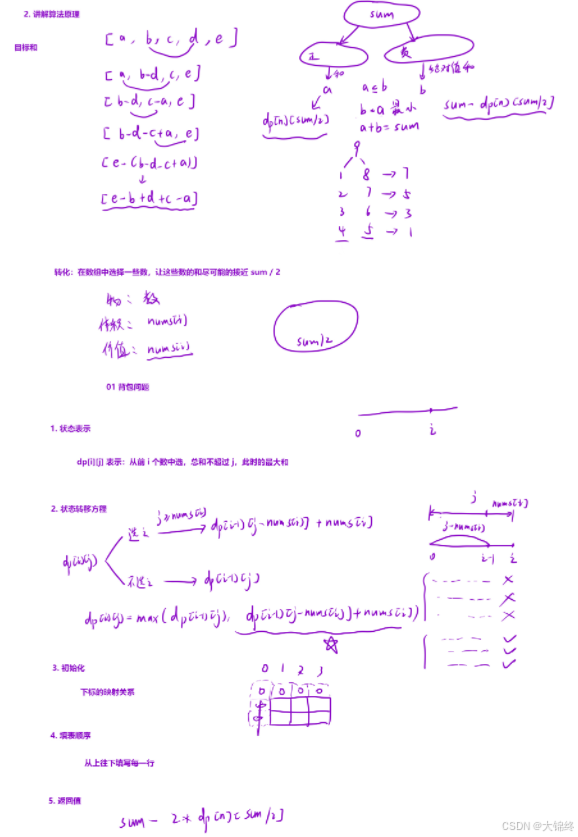 2. 讲解算法原理
目标和
[a, b, c, d, e]
[a, b-d, c, e]
[b-d, c-a, e]
[b-d-c+a, e]
[e-(b-d-c+a)]
↓
[e-b+d+c-a]
sum
正
负
↓和
↓绝对值和
a a≤b b
dp[n][sum/2]
b-a 最小
a+b=sum
sum-dp[n][sum/2]
9
1 8 → 7
2 7 → 5
3 6 → 3
4 5 → 1
转化：在数组中选择一些数，让这些数的和尽可能的接近 sum / 2
物： 数
体积： nums[i]
价值： nums[i]
sum/2
01 背包问题
1. 状态表示
0 i
dp[i][j] 表示：从前 i 个数中选，总和不超过 j，此时的最大和
2. 状态转移方程
dp[i][j]
选 i j≥nums[i] → dp[i-1][j-nums[i]] + nums[i]
不选 i → dp[i-1][j]
dp[i][j] = max(dp[i-1][j], dp[i-1][j-nums[i]]+nums[i])
j nums[i]
j-nums[i]
0 i-1 i
3. 初始化
下标的映射关系
0 1 2 3
0 0 0 0
0
0
4. 填表顺序
从上往下填写每一行
5. 返回值
sum - 2* dp[n][sum/2]
CSDN @大锦终